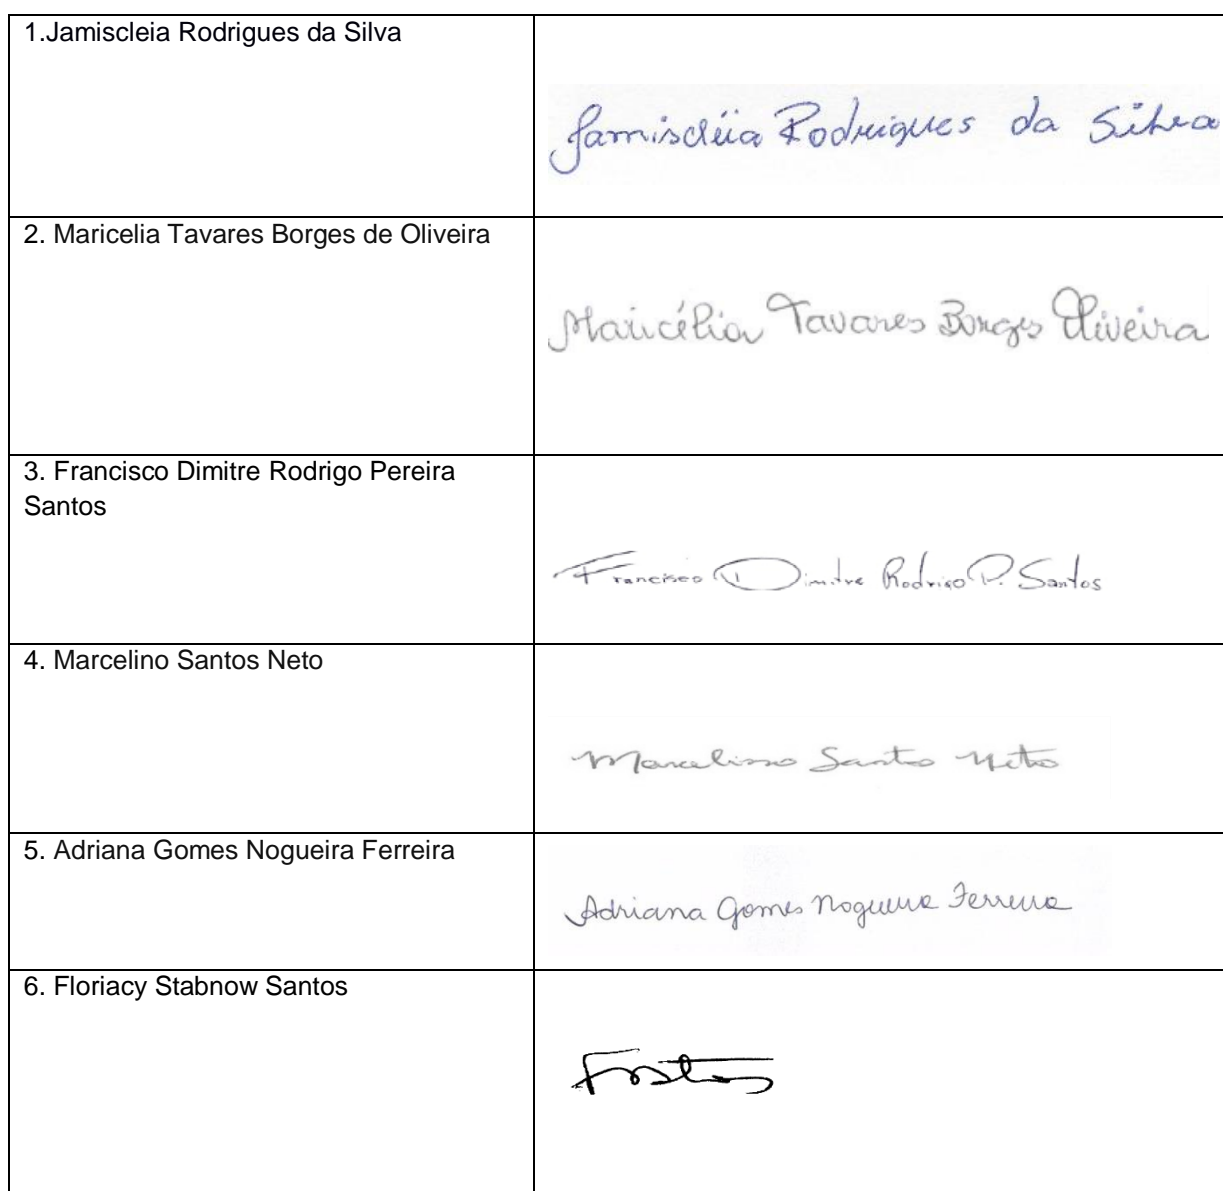 1.Jamiscleia Rodrigues da Silva
Jamiscléia Rodrigues da Silva
2. Maricelia Tavares Borges de Oliveira
Maricélia Tavares Borges Oliveira
3. Francisco Dimitre Rodrigo Pereira
Santos
Francisco Dimitre Rodrigo P. Santos
4. Marcelino Santos Neto
Marcelino Santos Neto
5. Adriana Gomes Nogueira Ferreira
Adriana Gomes Nogueira Ferreira
6. Floriacy Stabnow Santos